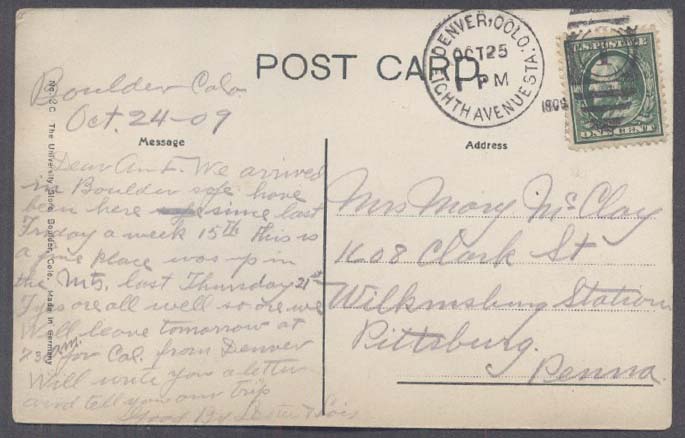 POST CARD
DENVER, COLO.
OCT 25
1 PM
1909
EIGHTH AVENUE STA.
U.S. POSTAGE
ONE CENT
Boulder Colo.
Oct. 24-09
Message
Address
No. 12 C The University Store, Boulder, Colo. Made in Germany
Dear Aunt. We arrived
in Boulder safe have
been here since last
Friday a week 15th This is
a fine place was up in
the Mts. last Thursday 21st
are all well so are we
Will leave tomorrow at
am. for Cal. from Denver
Will write you a letter
and tell you our trip
Good By Lester
Mrs Mary McClay
1608 Clark St
Wilkinsburg Station
Pittsburg.
Penna.